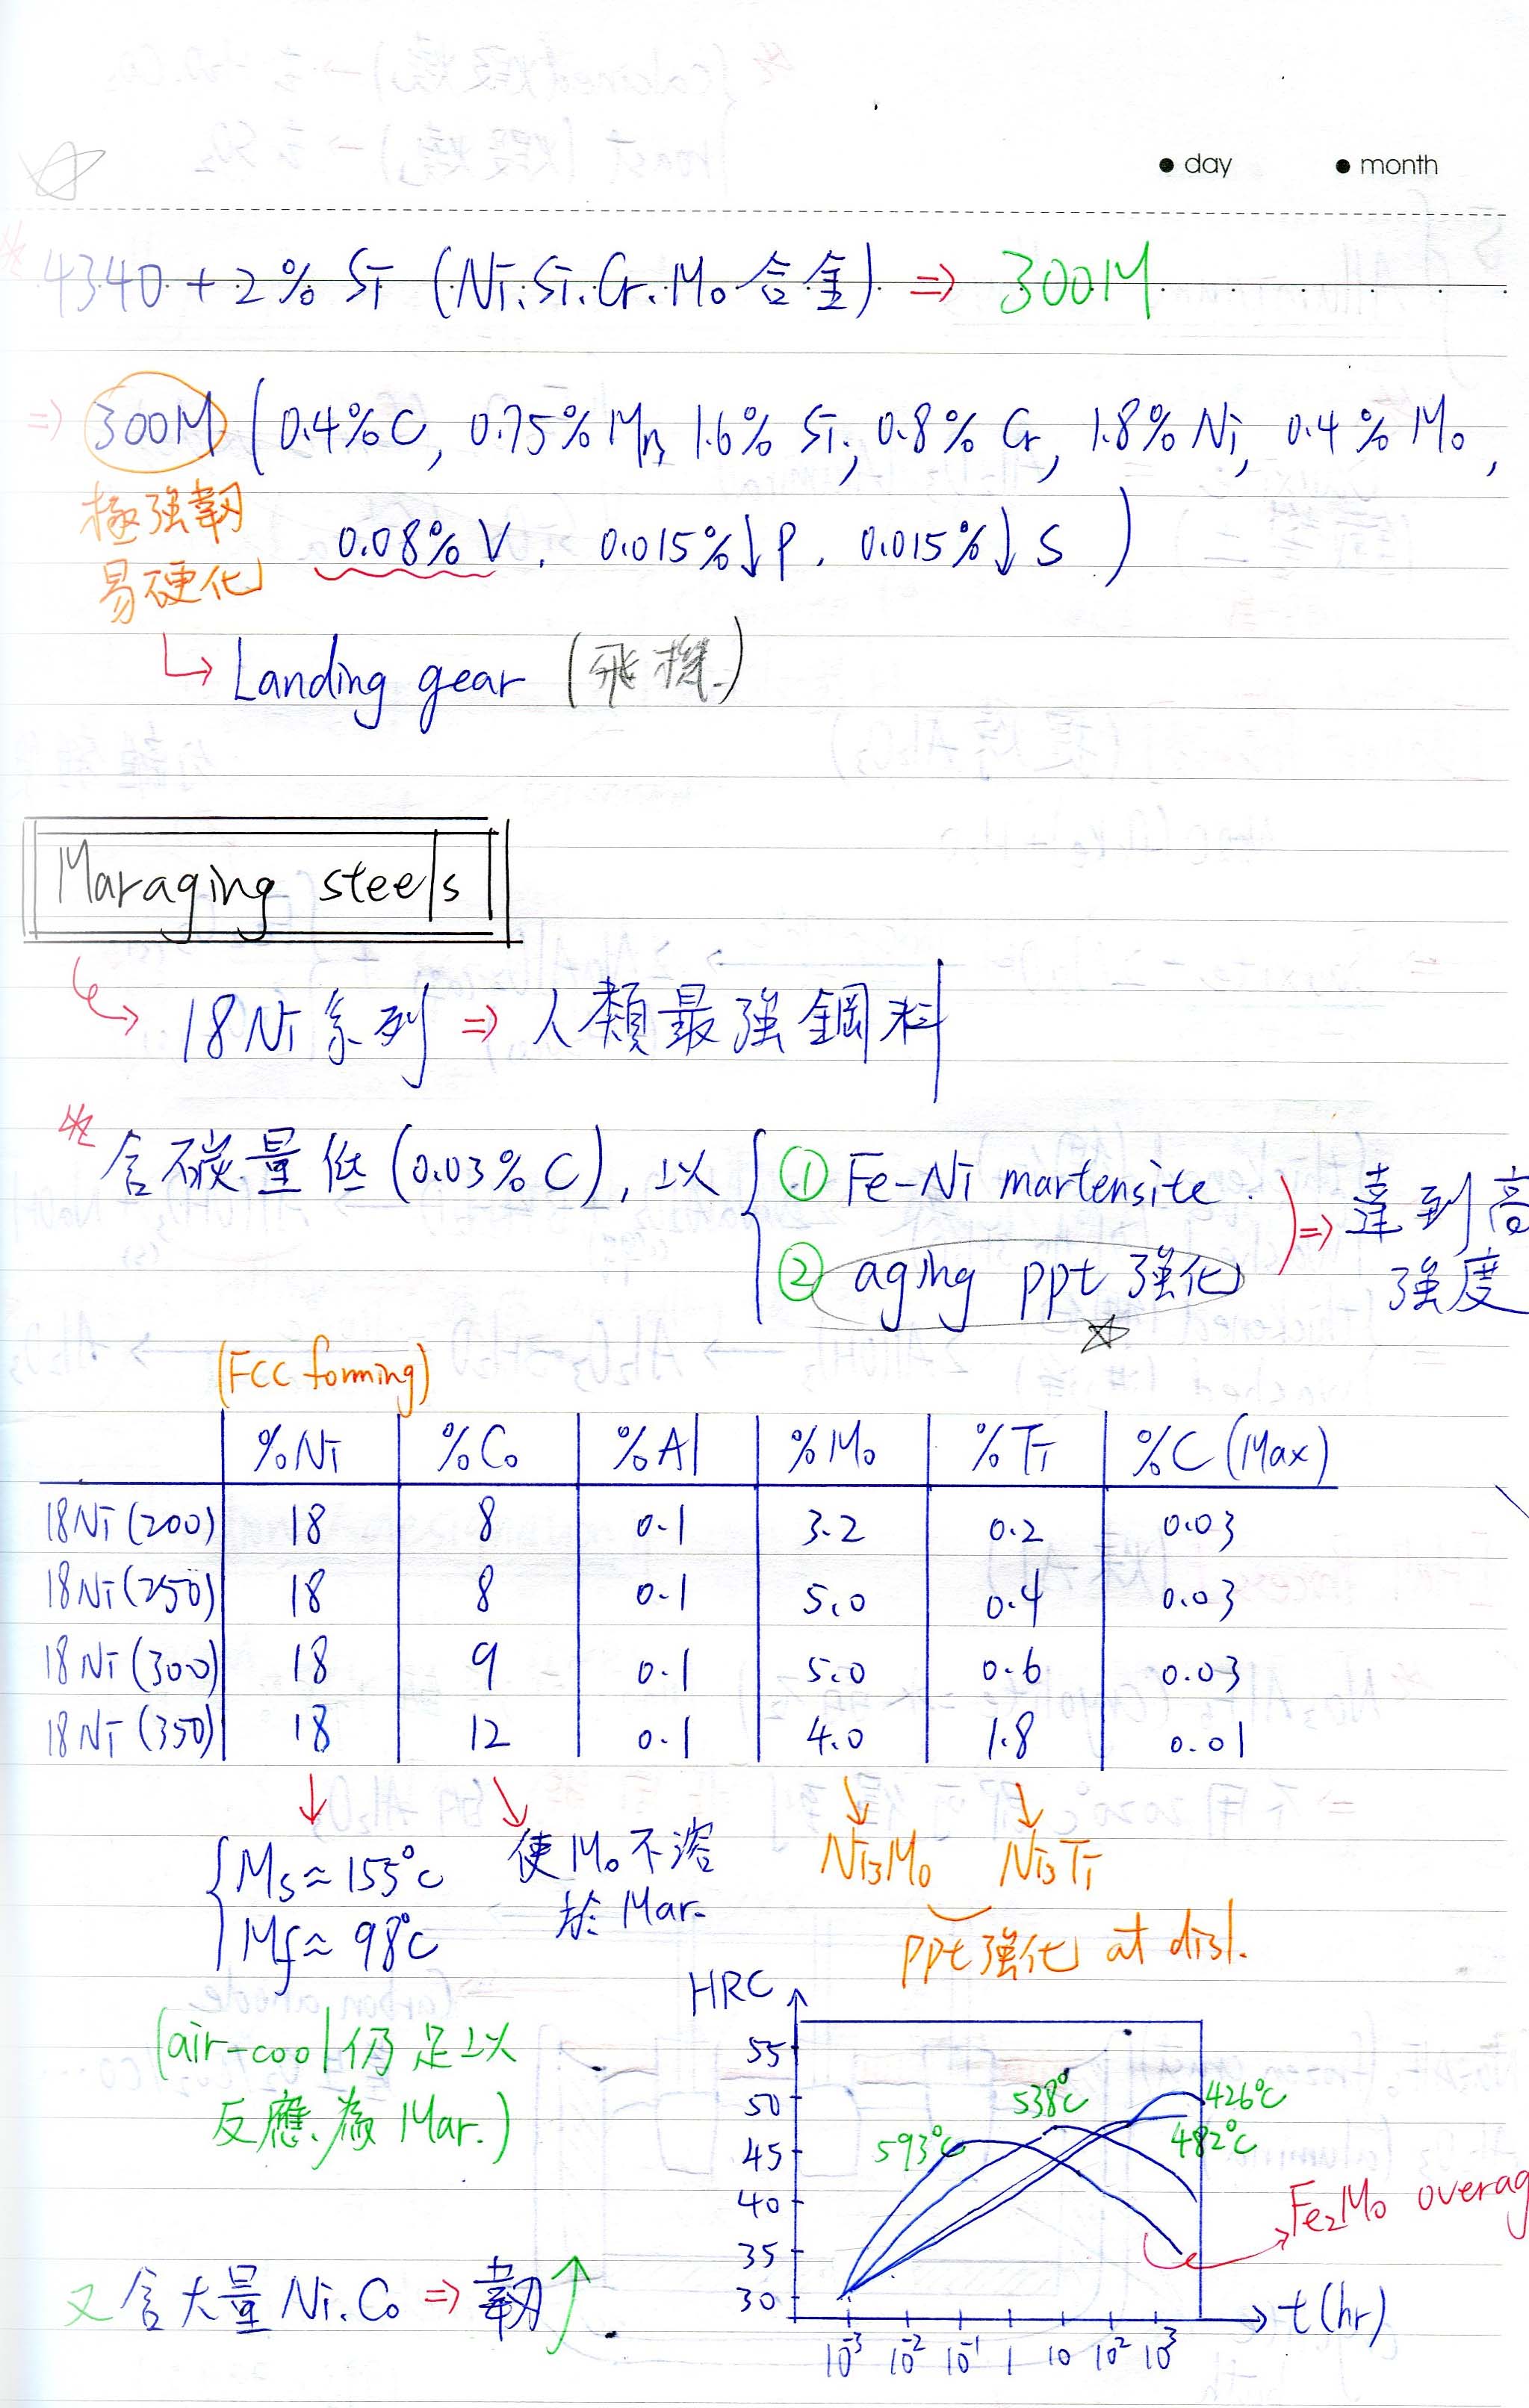 • day • month
4340 + 2% Si (Ni. Si. Cr. Mo 合金) ⇒ 300M
⇒ 300M (0.4%C, 0.75%Mn, 1.6% Si, 0.8% Cr, 1.8% Ni, 0.4% Mo,
極強韌
0.08% V, 0.015%↓P, 0.015%↓S)
易硬化
↳ Landing gear (飛機)
Maraging steels
↳ 18Ni 系列 ⇒ 人類最強鋼料
* 含碳量低 (0.03% C), 以 { ① Fe-Ni martensite. ② aging ppt 強化 } ⇒ 達到高
強度
(FCC forming)
%Ni %Co %Al %Mo %Ti %C (Max)
18Ni (200) 18 8 0.1 3.2 0.2 0.03
18Ni (250) 18 8 0.1 5.0 0.4 0.03
18Ni (300) 18 9 0.1 5.0 0.6 0.03
18Ni (350) 18 12 0.1 4.0 1.8 0.01
Ms ≈ 155°C
Mf ≈ 98°C
使Mo不溶
於 Mar.
Ni3Mo Ni3Ti
ppt強化 at disl.
(air-cool 仍足以
反應為 Mar.)
又含大量 Ni. Co ⇒ 韌↑
HRC
55
50
45
40
35
30
593°C
538°C
426°C
482°C
Fe2Mo overag
10⁻³ 10⁻² 10⁻¹ 1 10 10² 10³
t (hr)